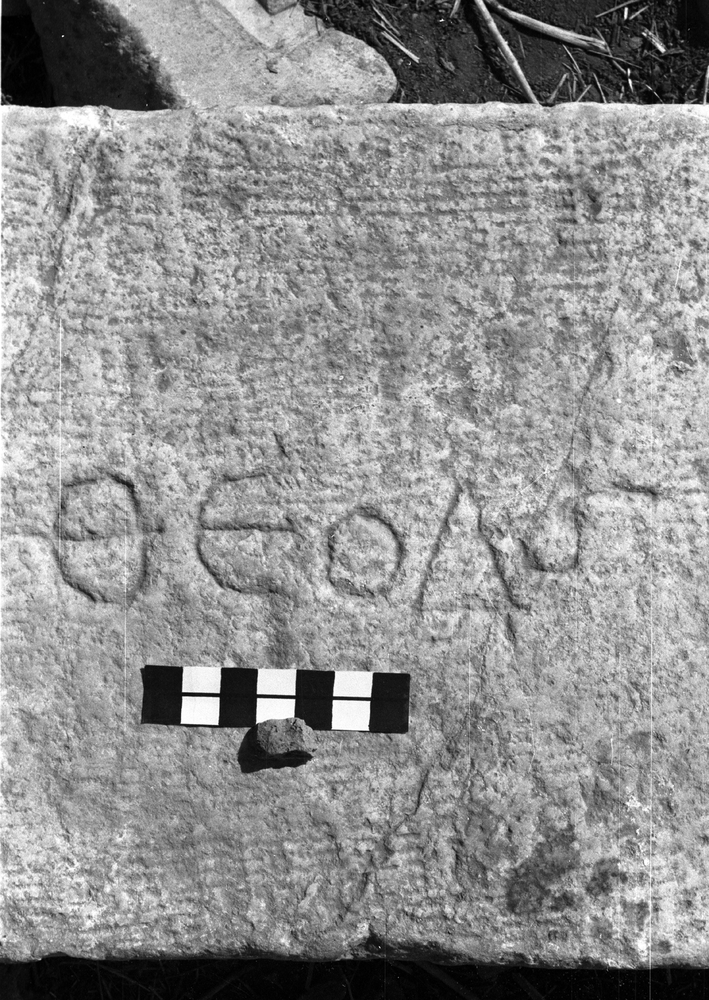 ΘΕΟΔ